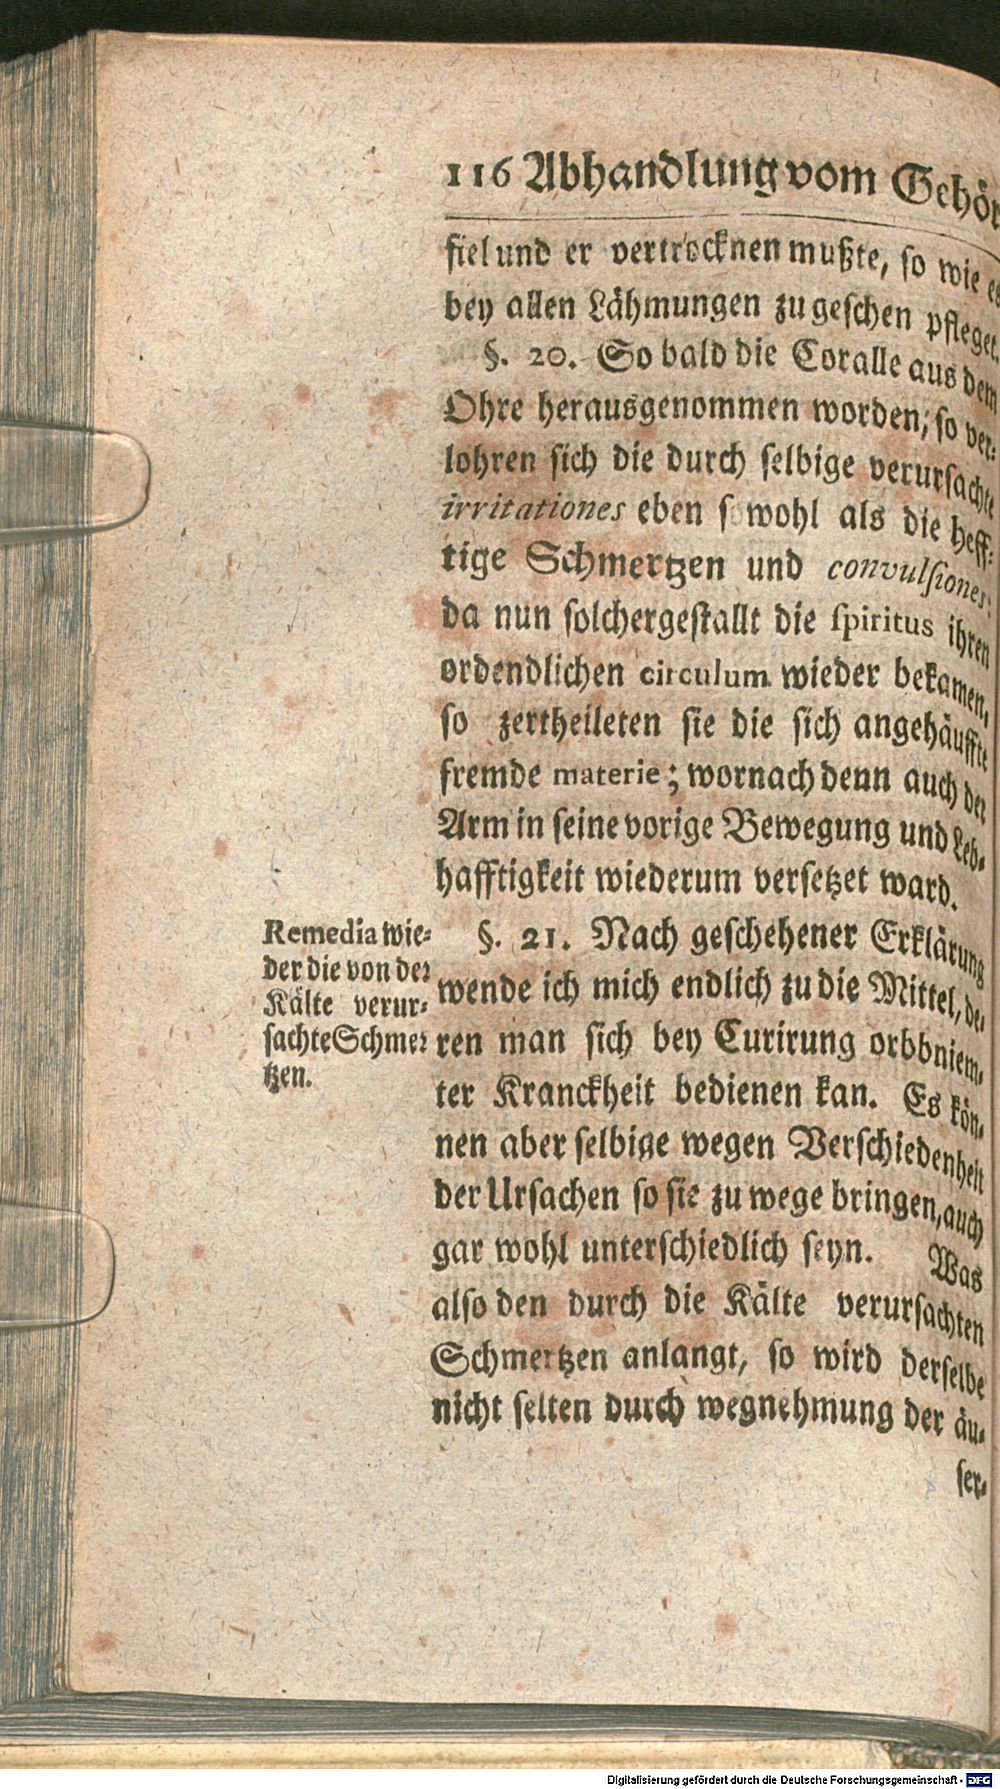 116 Abhandlung vom Gehör
fiel und er vertrocknen mußte, so wie es
bey allen Lähmungen zu geschen pfleget.
§. 20. So bald die Coralle aus dem
Ohre herausgenommen worden, so ver-
lohren sich die durch selbige verursachte
irritationes eben sowohl als die heff-
tige Schmertzen und convulsiones;
da nun solchergestallt die spiritus ihren
ordendlichen circulum wieder bekamen,
so zertheileten sie die sich angehäuffte
fremde materie; wornach denn auch der
Arm in seine vorige Bewegung und Leb-
hafftigkeit wiederum versetzet ward.
Remedia wie-
der die von der
Kälte verur-
sachte Schmer
tzen.
§. 21. Nach geschehener Erklärung
wende ich mich endlich zu die Mittel, de-
ren man sich bey Curirung orbbniem-
ter Kranckheit bedienen kan. Es kön-
nen aber selbige wegen Verschiedenheit
der Ursachen so sie zu wege bringen, auch
gar wohl unterschiedlich seyn. Was
also den durch die Kälte verursachten
Schmertzen anlangt, so wird derselbe
nicht selten durch wegnehmung der äu-
ser-
Digitalisierung gefördert durch die Deutsche Forschungsgemeinschaft - DFG